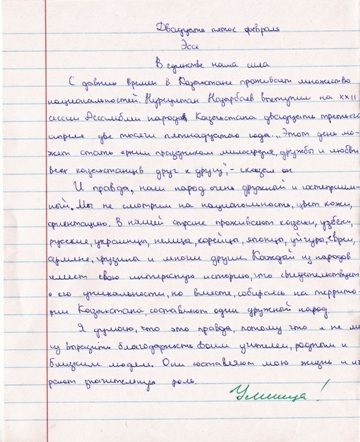 Двадцать пятое февраля
Эссе
В единстве наша сила
С давних времён в Казахстане проживает множество
национальностей. Нурсултан Назарбаев выступил на XXII
сессии Ассамблеи народов Казахстана двадцать третьего
апреля две тысячи пятнадцатого года. „Этот день мо-
жет стать праздником милосердия, дружбы и любви
всех казахстанцев друг к другу", - сказал он
И правда, наш народ очень дружный и
Мы не смотрим на национальность, цвет кожи,
ориентацию. В нашей стране проживают казахи, узбеки,
русские, украинцы, немцы, корейцы, японцы, уйгуры, евреи,
армяне, грузины и многие другие. Каждый из народов
имеет свою интересную историю, что свидетельствует
о его уникальности, но вместе, собираясь на террито-
рии Казахстана составляют один дружный народ.
Я думаю, что это правда, потому что я не мо-
гу выразить благодарность своим учителям, родным и
близким людям. Они составляют мою жизнь и иг-
рают значительную роль.
Умница!